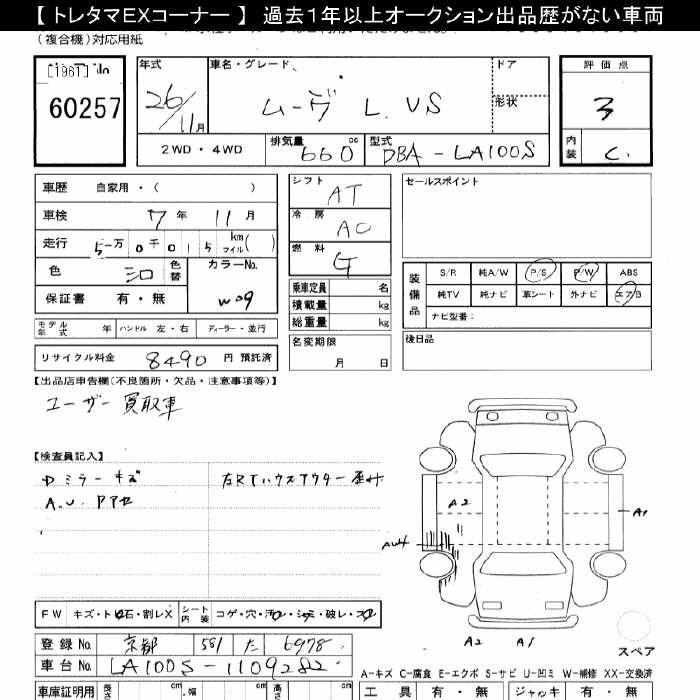 【 トレタマEXコーナー 】 過去1年以上オークション出品歴がない車両
(複合機)対応用紙
60257
年式 26/11月
車名・グレード ムーヴ L VS
ドア
形状
2WD・4WD
排気量 660 cc
型式 DBA-LA100S
評価点 3
内装 C
車歴 自家用・( )
車検 7年 11月
走行 5万0千015 km マイル( )
色 シロ 色替
カラーNo. W09
保証書 有・無
シフト AT
冷房 AC
燃料 G
乗車定員 名
積載量 kg
総重量 kg
セールスポイント
装備品
S/R 純A/W P/S P/W ABS
純TV 純ナビ 革シート 外ナビ エアB
ナビ型番:
モデル年式 年 ハンドル 左・右 ディーラー・並行
名変期限 月 日
後日品
リサイクル料金 8490 円 預託済
【出品店申告欄(不良箇所・欠品・注意事項等)】
ユーザー買取車
【検査員記入】
Dミラーキズ
左RTハウスアウター歪み
A.U.
A2
A1
A2 A1
スペア
FW キズ・ト石・割レX シート内装 コゲ・穴・汚レ・シミ・破レ・スレ
登録No. 京都 581 た 6978
車台No. LA100S-1109282
A-キズ C-腐食 E-エクボ S-サビ U-凹ミ W-補修 XX-交換済
車庫証明用 長さ cm 幅 cm 高さ cm
工具 有・無 ジャッキ 有・無